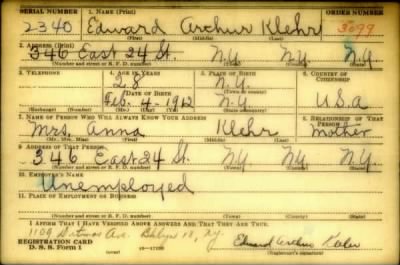 SERIAL NUMBER 1. NAME (Print) ORDER NUMBER
2340 Edward Arthur Klehr 3099
(First) (Middle) (Last)
2. ADDRESS (Print)
346 East 24 St. N.Y. N.Y.
(Number and street or R. F. D. number) (Town) (County) (State)
3. TELEPHONE 4. AGE IN YEARS 5. PLACE OF BIRTH 6. COUNTRY OF CITIZENSHIP
28 N.Y.
DATE OF BIRTH (Town or county)
Feb. 4-1912 N.Y. U.S.A
(Exchange) (Number) (Mo.) (Day) (Yr.) (State or country)
7. NAME OF PERSON WHO WILL ALWAYS KNOW YOUR ADDRESS 8. RELATIONSHIP OF THAT PERSON
Mrs. Anna Klehr mother
(Mr., Mrs., Miss) (First) (Middle) (Last)
9. ADDRESS OF THAT PERSON
346 East 24 St. N.Y. N.Y. N.Y.
(Number and street or R. F. D. number) (Town) (County) (State)
10. EMPLOYER'S NAME
Unemployed
11. PLACE OF EMPLOYMENT OR BUSINESS
(Number and street or R. F. D. number) (Town) (County) (State)
I AFFIRM THAT I HAVE VERIFIED ABOVE ANSWERS AND THAT THEY ARE TRUE.
1109 Ditmas Ave. Bklyn 18, N.Y.
REGISTRATION CARD Edward Arthur Klehr
D. S. S. Form 1 (Registrant's signature)